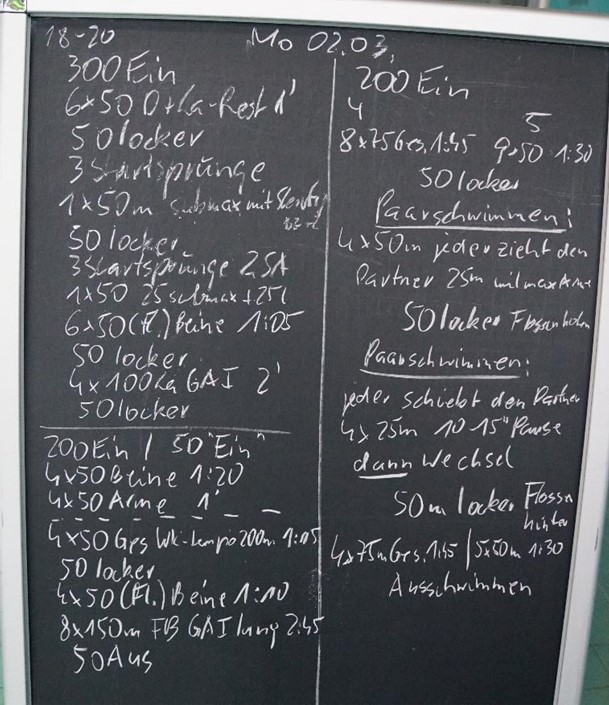 18-20 Mo 02.03.
300 Ein
6x50 D+Ka-Rest 1'
50 locker
3 Startsprünge
1x50m submax mit
50 locker
3 Startsprünge 25A
1x50 25 submax + 25l
6x50 (Fl.) Beine 1:05
50 locker
4x100 La GAI 2'
50 locker
200 Ein / 50 "Ein"
4x50 Beine 1:20
4x50 Arme 1'
4x50 Ges Wk-tempo 200m 1:05
50 locker
4x50 (Fl.) Beine 1:10
8x150m GAI lang 2:45
50 Aus
200 Ein
4 5
8x75 Ges. 1:45 9x50 1:30
50 locker
Paarschwimmen:
4x50m jeder zieht den
Partner 25m mit max Arme
50 locker Flossen holen
Paarschwimmen:
jeder schiebt den Partner
4x25m 10-15" Pause
dann Wechsel
50m locker Flossen
4x75m Ges. 1:45 / 5x50m 1:30
Ausschwimmen